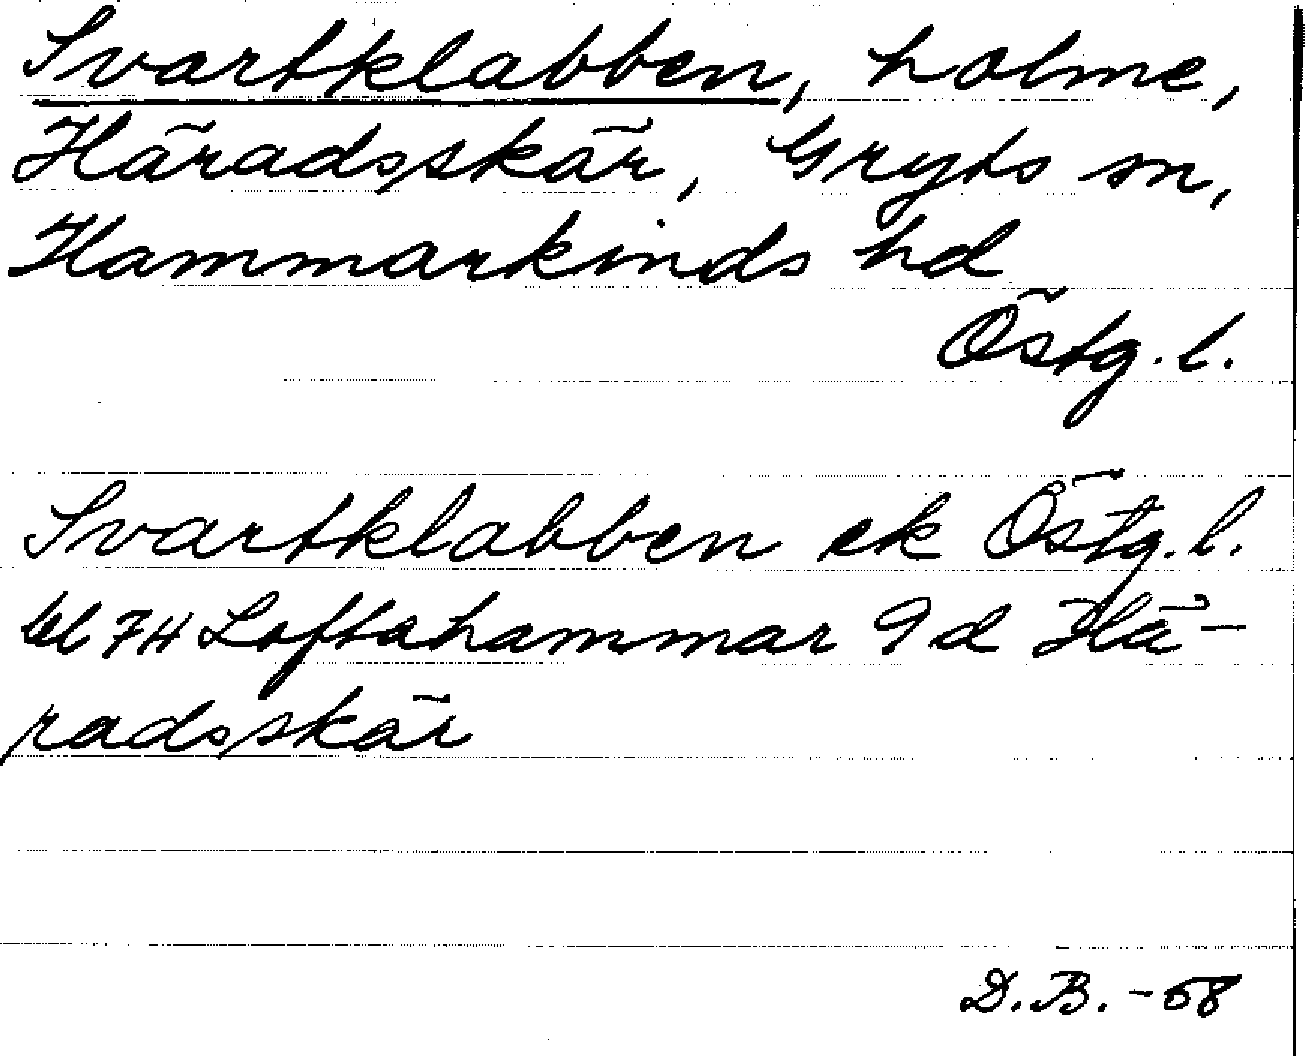 Svartklabben, holme,
Häradsskär, Gryts sn,
Hammarkinds hd
Östg. l.
Svartklabben ek Östg. l.
bl 7H Loftahammar 9 d Hä-
radsskär
D.B. -68